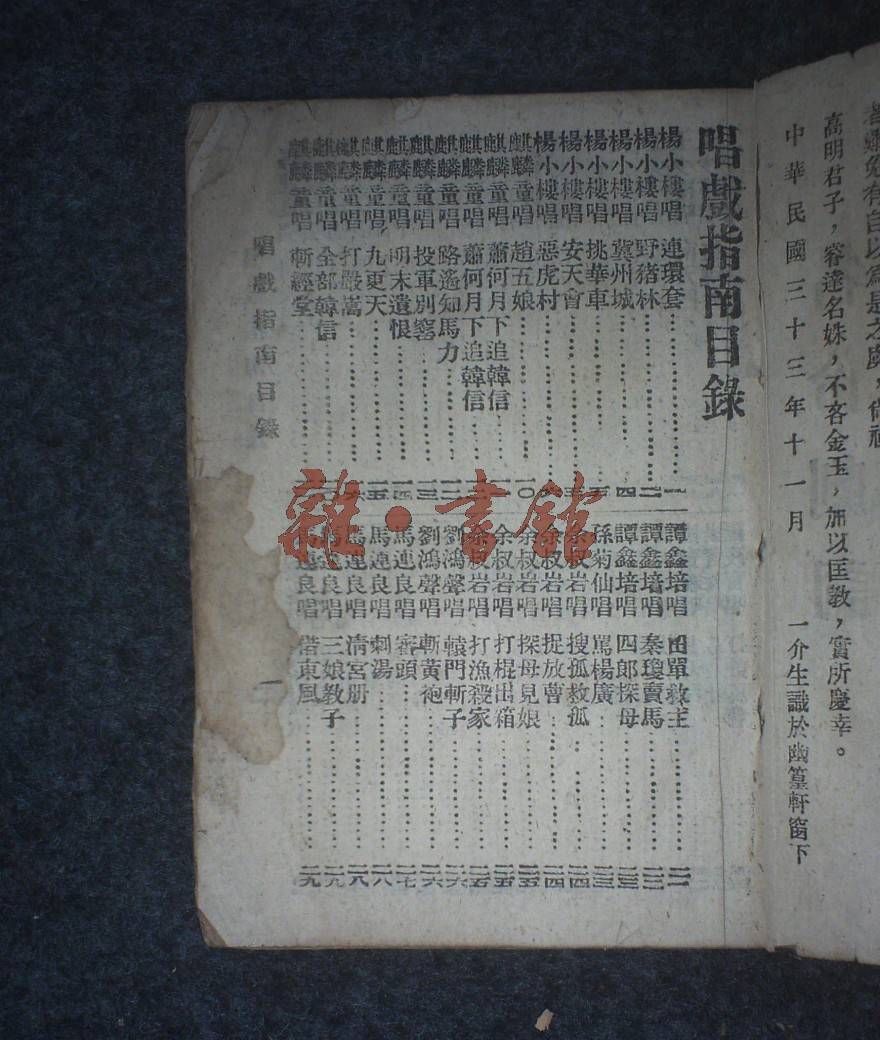 高明君子，睿達名姝，不吝金玉，加以匡教，實所慶幸。
中華民國三十三年十一月
一介生識於幽篁軒窗下
唱戲指南目錄
楊小樓唱 連環套
楊小樓唱 野猪林
楊小樓唱 冀州城 四
楊小樓唱 挑華車
楊小樓唱 安天會
楊小樓唱 惡虎村
麒麟童唱 趙五娘 一〇
麒麟童唱 蕭何月下追韓信
麒麟童唱 蕭何月下追韓信
麒麟童唱 路遙知馬力 一二
麒麟童唱 投軍別窰 一三
麒麟童唱 明末遺恨 一四
麒麟童唱 九更天 一五
麒麟童唱 打嚴嵩
麒麟童唱 全部韓信
麒麟童唱 斬經堂
譚鑫培唱 田單救主
譚鑫培唱 秦瓊賣馬
譚鑫培唱 四郎探母 二三
孫菊仙唱 罵楊廣 二三
余叔岩唱 搜孤救孤 二四
余叔岩唱 捉放曹 二四
余叔岩唱 探母見娘 二五
余叔岩唱 打棍出箱 二五
余叔岩唱 打漁殺家 二五
劉鴻聲唱 轅門斬子 二六
劉鴻聲唱 斬黃袍 二六
馬連良唱 審頭 二七
馬連良唱 刺湯 二八
馬連良唱 清宮册 二八
馬連良唱 三娘教子 二九
馬連良唱 借東風 二九
唱戲指南目錄
一
雜·書館